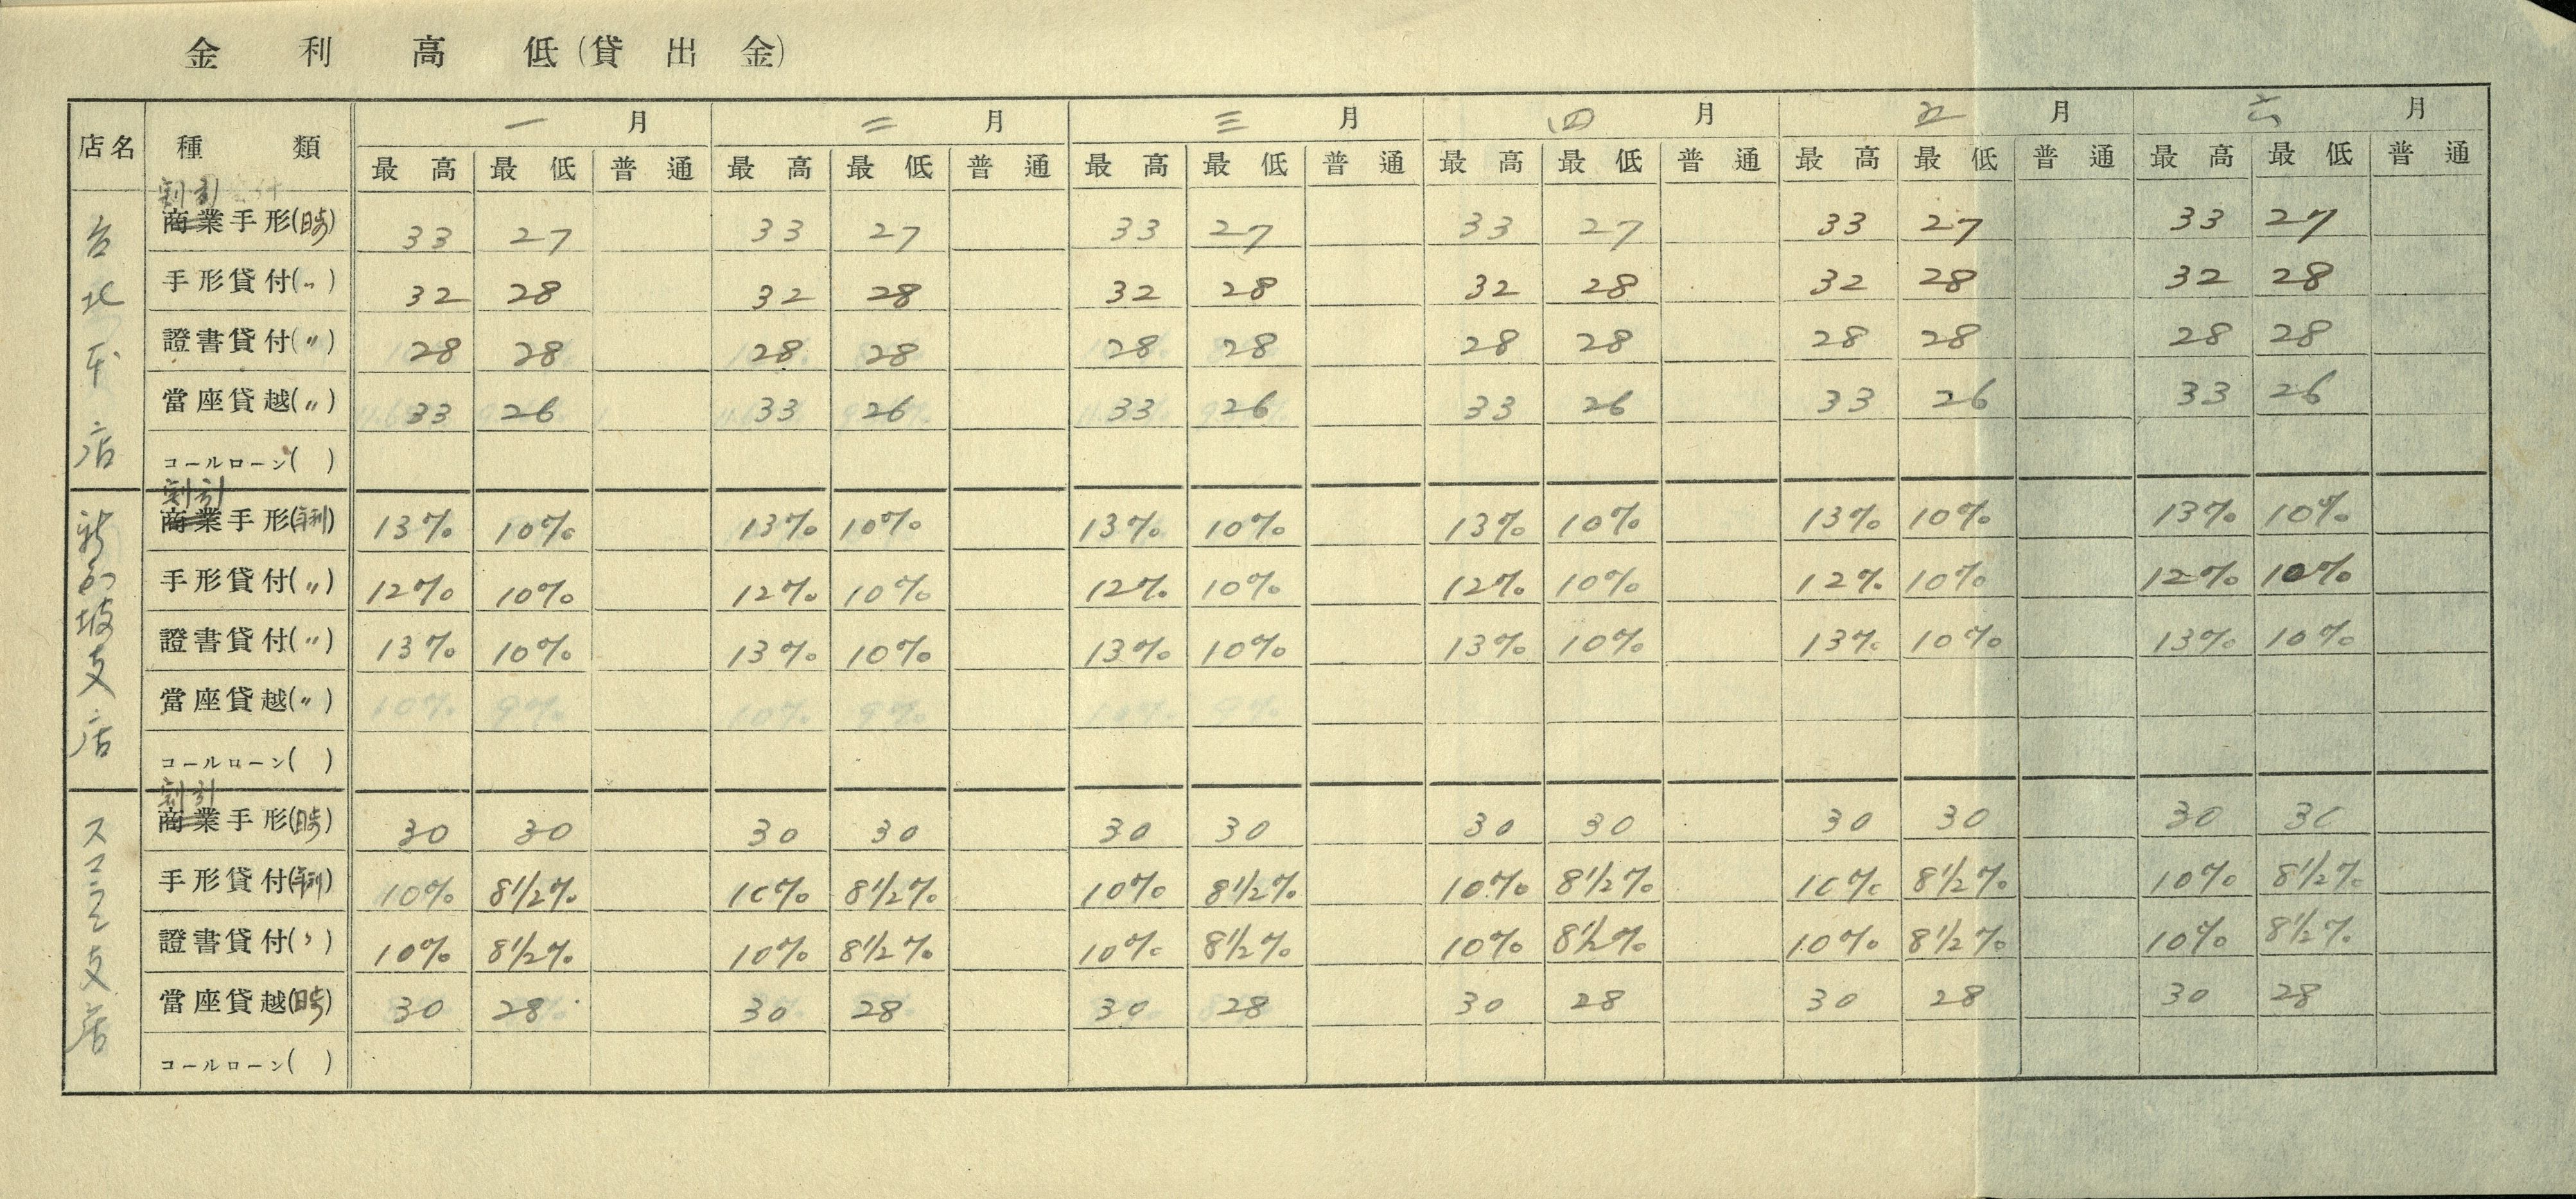 金利高低(貸出金)
店名 種類 一月 二月 三月 四月 五月 六月
最高 最低 普通 最高 最低 普通 最高 最低 普通 最高 最低 普通 最高 最低 普通 最高 最低 普通
台北本店
割引
商業手形(日歩) 33 27 33 27 33 27 33 27 33 27 33 27
手形貸付(〃) 32 28 32 28 32 28 32 28 32 28 32 28
證書貸付(〃) 28 28 28 28 28 28 28 28 28 28 28 28
當座貸越(〃) 33 26 33 26 33 26 33 26 33 26 33 26
コールローン( )
新嘉坡支店
割引
商業手形(年利) 13% 10% 13% 10% 13% 10% 13% 10% 13% 10% 13% 10%
手形貸付(〃) 12% 10% 12% 10% 12% 10% 12% 10% 12% 10% 12% 10%
證書貸付(〃) 13% 10% 13% 10% 13% 10% 13% 10% 13% 10% 13% 10%
當座貸越(〃)
コールローン( )
支店
割引
商業手形(日歩) 30 30 30 30 30 30 30 30 30 30 30 30
手形貸付(年利) 10% 8 1/2% 10% 8 1/2% 10% 8 1/2% 10% 8 1/2% 10% 8 1/2% 10% 8 1/2%
證書貸付(〃) 10% 8 1/2% 10% 8 1/2% 10% 8 1/2% 10% 8 1/2% 10% 8 1/2% 10% 8 1/2%
當座貸越(日歩) 30 28 30 28 30 28 30 28 30 28 30 28
コールローン( )